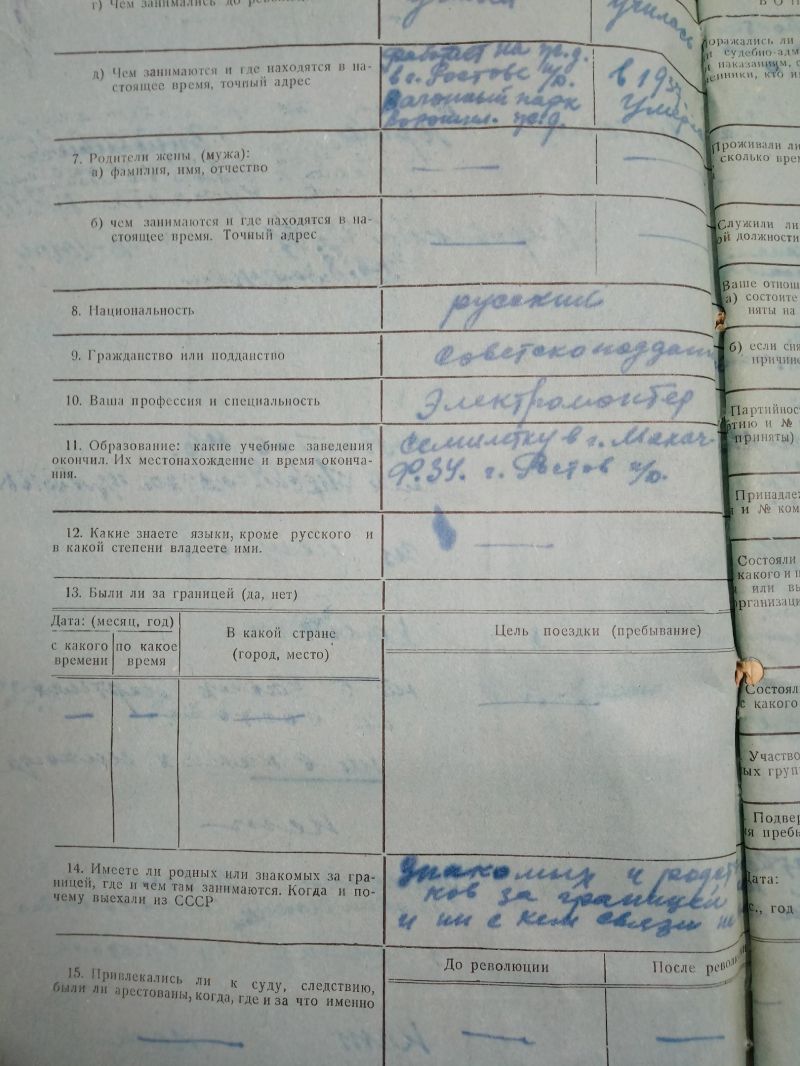 г) Чем занимались до
училась
д) Чем занимаются и где находятся в на-
стоящее время, точный адрес
работает на ж.д.
в г. Ростове н/Д.
Вагонный парк
ворошил. ж.д.
в 193
умерла
7. Родители жены (мужа):
а) фамилия, имя, отчество
—
—
б) чем занимаются и где находятся в на-
стоящее время. Точный адрес
—
—
8. Национальность
русский
9. Гражданство или подданство
Советско поддан
10. Ваша профессия и специальность
Электромонтер
11. Образование: какие учебные заведения
окончил. Их местонахождение и время оконча-
ния.
семилетку в г. Махач-
Ф.ЗУ. г. Ростов н/Д.
12. Какие знаете языки, кроме русского и
в какой степени владеете ими.
—
13. Были ли за границей (да, нет)
Дата: (месяц, год)
с какого
времени
по какое
время
В какой стране
(город, место)
Цель поездки (пребывание)
—
—
14. Имеете ли родных или знакомых за гра-
ницей, где и чем там занимаются. Когда и по-
чему выехали из СССР
знакомых и родст
ков за границей
и ни с кем связи не
15. Привлекались ли к суду, следствию,
были ли арестованы, когда, где и за что именно
До революции
После револю
—
—
—
судебно-адм
наказаниям, с
Проживали ли
сколько вре
Служили ли
ой должности
Ваше отнош
а) состоите
няты на
б) если сня
причине
Партийнос
ртию и №
приняты)
Принадле
и № ком
Состояли
какого и п
или вы
организаци
Состоял
с какого
Участво
ых груп
Подвер
я пребы
Дата:
с., год